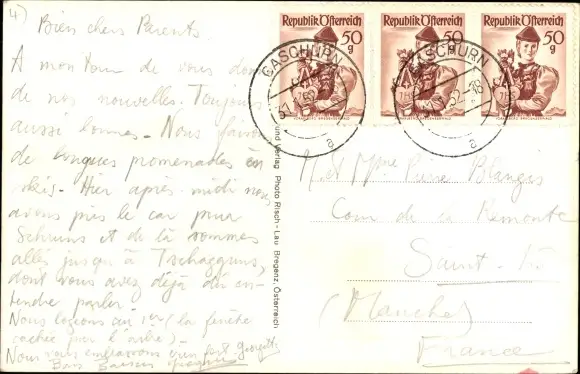 4)
Bien chers Parents.
A mon tour de vous donner
de nos nouvelles. Toujours
aussi bonnes. Nous faisons
de longues promenades en
skis. Hier après-midi nous
avons pris le car pour
Schruns et de là sommes
allés jusqu'à Tschagguns,
dont vous avez déjà dû en-
tendre parler.
Nous logeons au 1er (la fenêtre
cachée par l'arbre).
Nous vous embrassons bien fort
Bons Baisers
Republik Österreich
50 g
Republik Österreich
50 g
Republik Österreich
50 g
GASCHURN
a
GASCHURN
a
und Verlag Photo Risch-Lau Bregenz, Österreich
M. et Mme Pierre
Cour de la Remonte
Saint-Lô
(Manche)
France